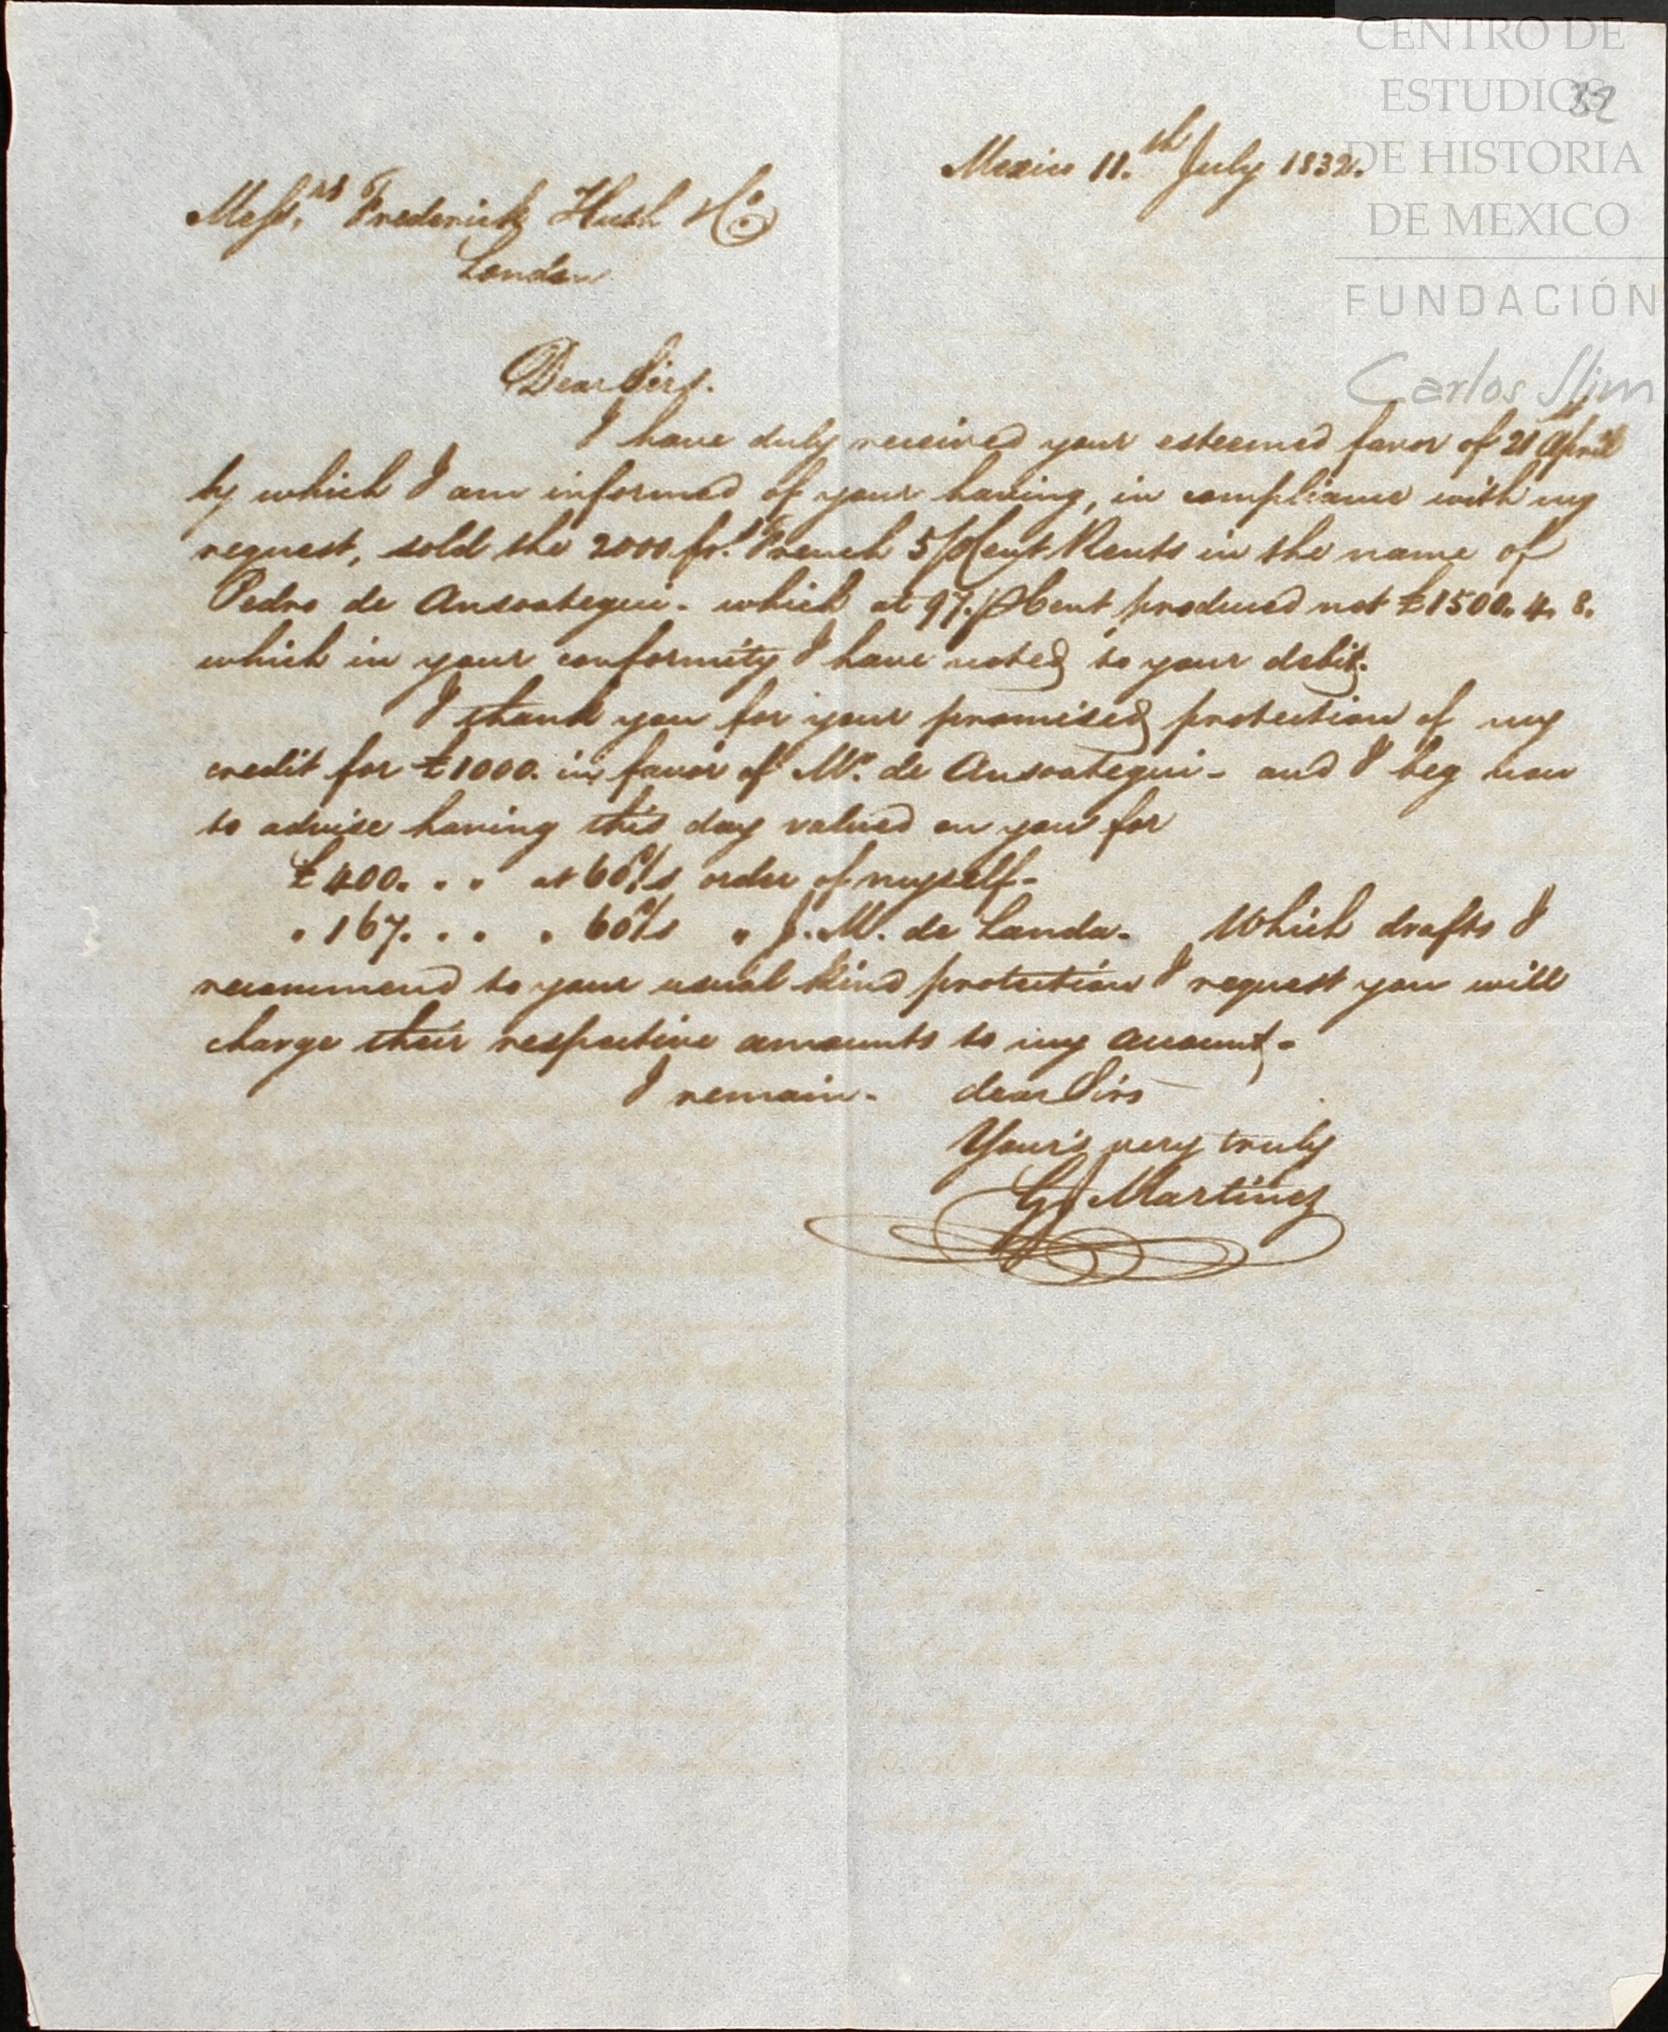 CENTRO DE
ESTUDIOS
DE HISTORIA
DE MEXICO
FUNDACIÓN
Carlos Slim
32
Mexico 11.th July 1832.
Mess.rs Frederick Huth & Co
London
Dear Sirs.
I have duly received your esteemed favor of 21 April
by which I am informed of your having, in compliance with my
request, sold the 2000 frs. French 5 P Cent Rents in the name of
Pedro de Ansoategui. which at 97. P Cent produced net £1500. 4. 8.
which in your conformity I have noted to your debit.
I thank you for your promised protection of my
credit for £1000. in favor of Mr. de Ansoategui - and I beg now
to advise having this day valued on you for
£400. . . at 60 d/s order of myself -
" 167. . . " 60 d/s " J. M. de Landa. Which drafts I
recommend to your usual kind protection I request you will
charge their respective amounts to my account -
I remain. dear Sirs
Your's very truly
G J Martinez